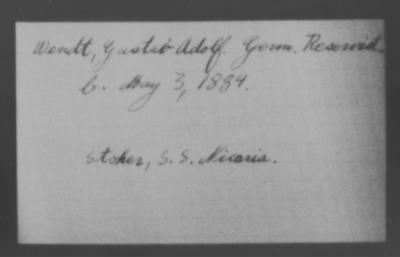 Wendt, Gustav Adolf. Germ. Reservist.
b. May 3, 1884.
Stoker, S. S. Nicaria.